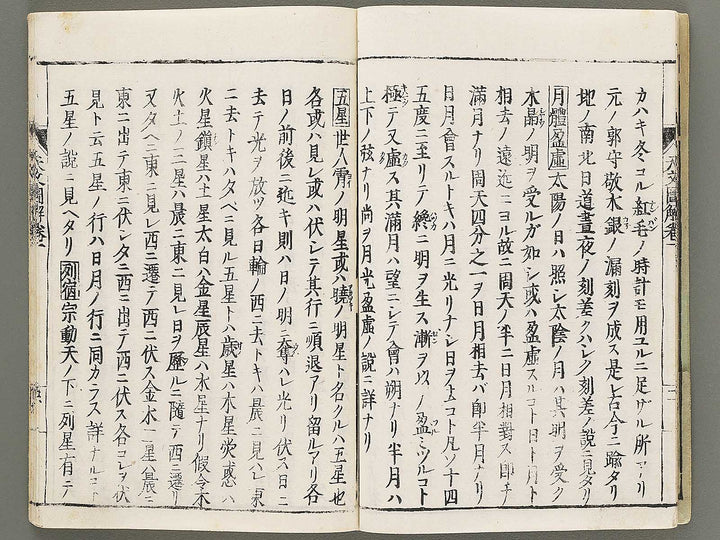 カハキ冬コル紅毛ノ時計モ用ユルニ足ザル所アリ
元ノ郭守敬水銀ノ漏刻ヲ成ス是レ古今ニ踰タリ
地ノ南北日道晝夜ノ刻差クハシク刻差ノ說ニ見タリ
月體盈虛太陽ノ日ハ照シ太陰ノ月ハ其明ヲ受ク
水晶ノ明ヲ受ルガ如シ或ハ盈虛スルコト日ト月ト
相去ノ遠近ニヨル故ニ周天ノ半ニ日月相對ス即チ
滿月ナリ周天四分之一ヲ日月相去バ即半月ナリ
日月會スルトキハ月ニ光リナシ日ヲ去コト凡ソ十四
五度ニ至リテ纔ニ明ヲ生ス漸ヲ以ノ盈ミツルコト
極テ又虛ス其滿月ハ望ニシテ會ハ朔ナリ半月ハ
上下ノ弦ナリ尚ヲ月光盈虛ノ說ニ詳ナリ
五星世人霄ノ明星或ハ曉ノ明星ト名クルハ五星也
各或ハ見レ或ハ伏シテ其行ニ順退アリ留ルアリ各
日ノ前後ニ近ハキ則ハ日ノ明ニ奪ハレ光リ伏ス日ニ
去テ光ヲ放ツ各日輪ノ西ニ去トキハ晨ニ見ハレ東
ニ去トキハタベニ見ル五星トハ歲星ハ木星熒惑ハ
火星鎮星ハ土星太白ハ金星辰星ハ水星ナリ假令木
火土ノ三星ハ晨ニ東ニ見レ日ヲ歷ルニ隨テ西ニ遷リ
又タベニ東ニ見レ西ニ遷テ西ニ伏ス金水二星ハ晨ニ
東ニ出テ東ニ伏シタニ西ニ出テ西ニ伏ス各コレヲ伏
見ト云五星ノ行ハ日月ノ行ニ同カラス詳ナルコト
五星ノ說ニ見ヘタリ列宿宗動天ノ下ニ列星有テ
天文圖解卷二